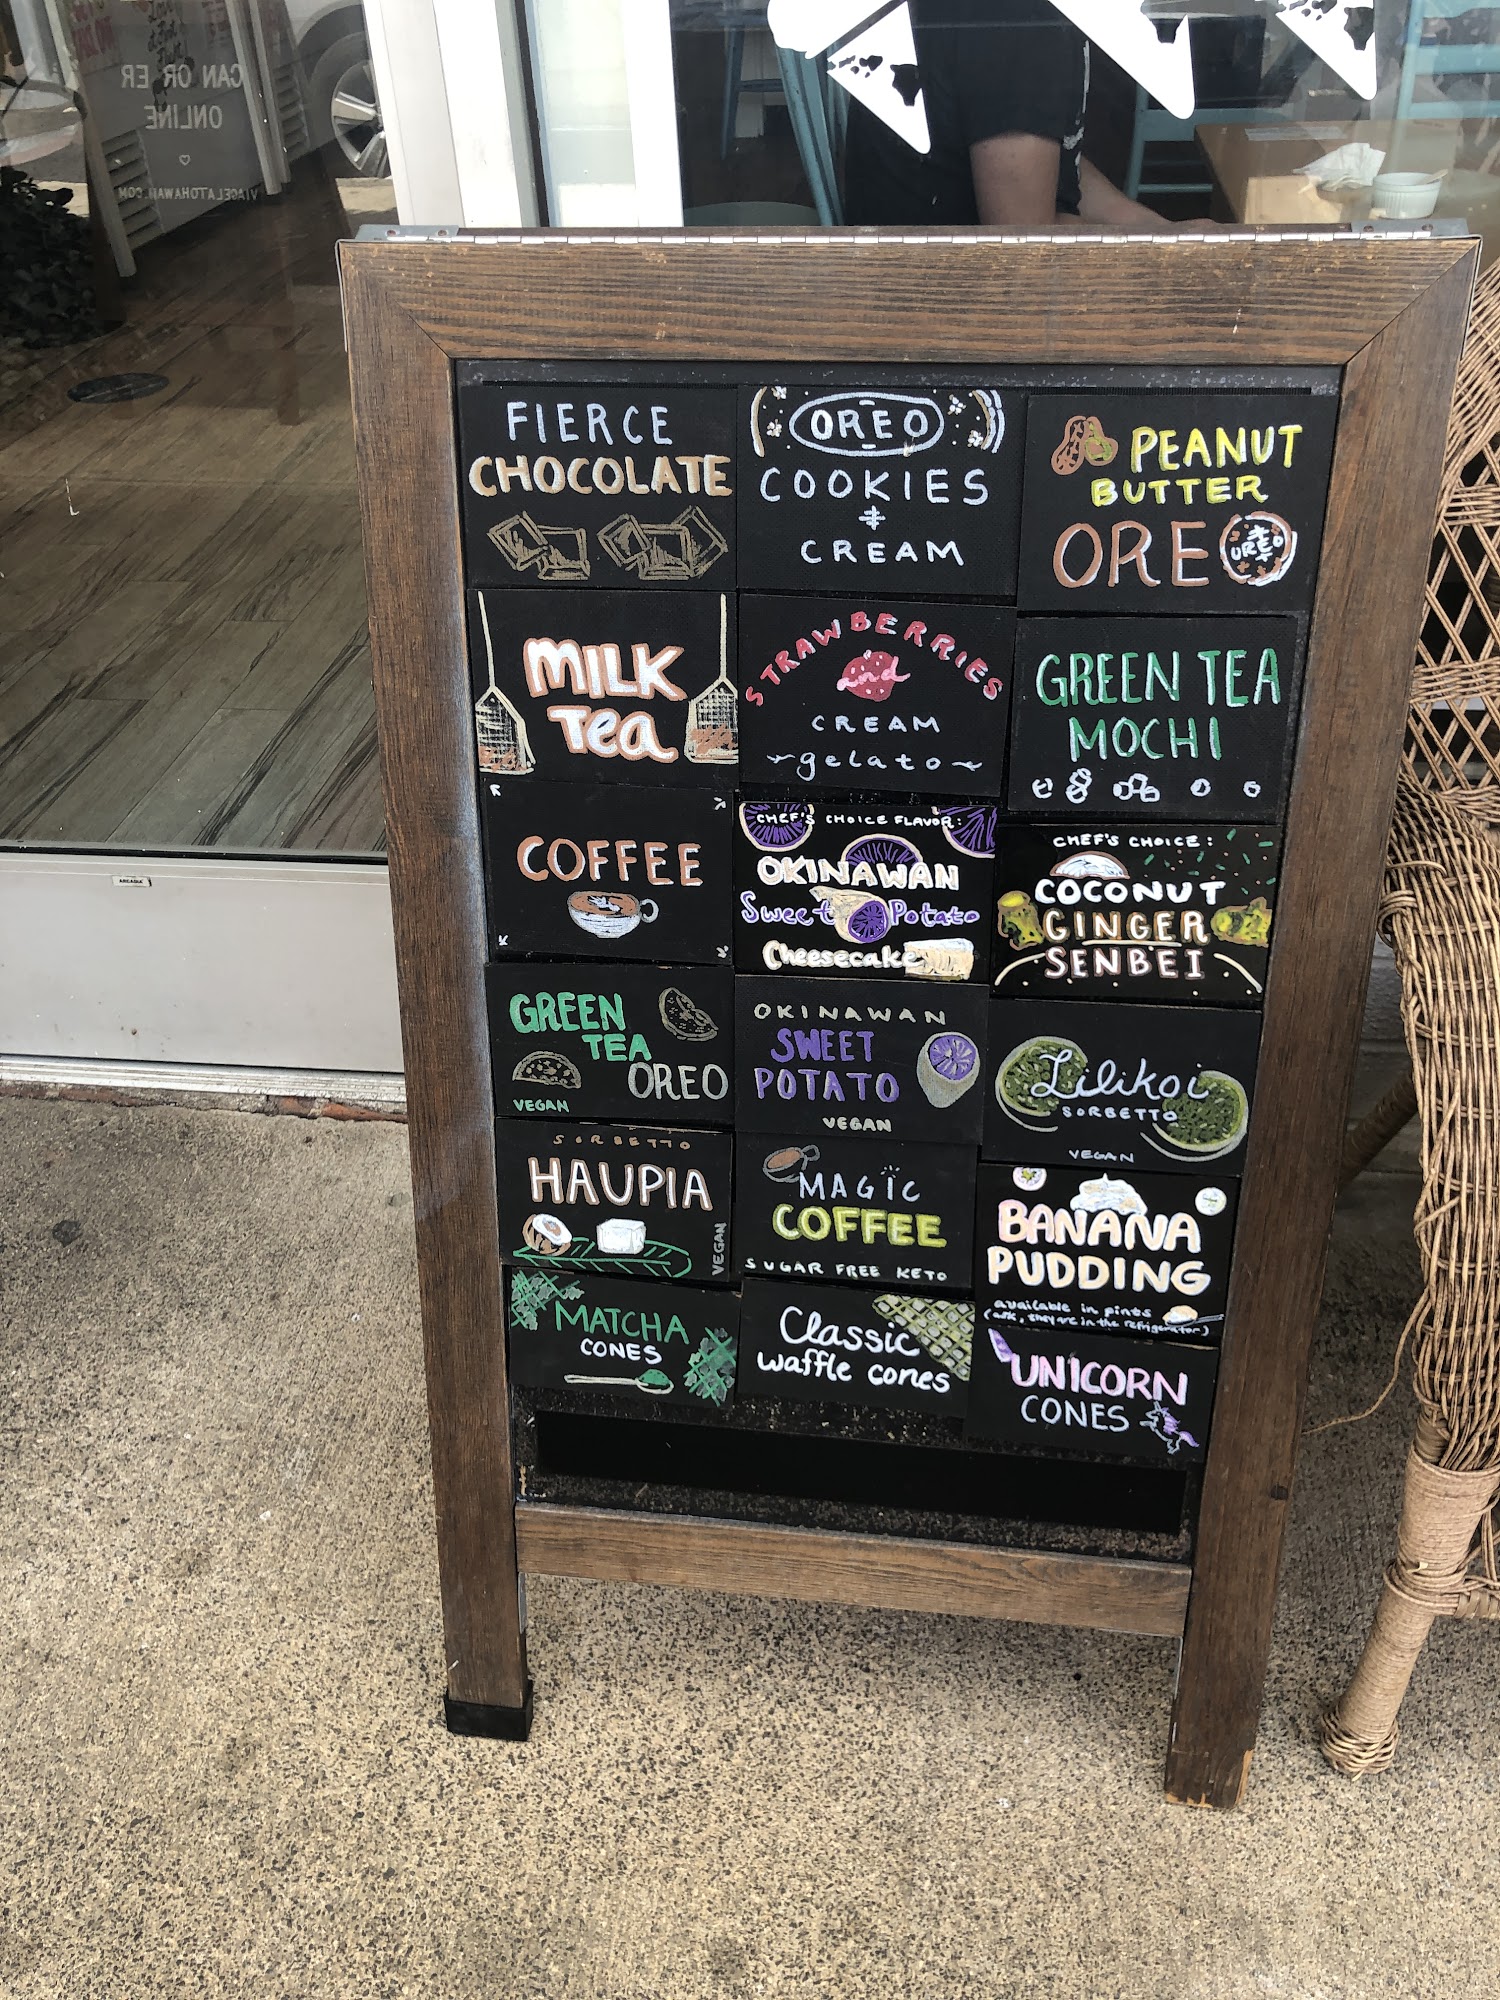 CAN OR ER
ONLINE
VIAGELATOHAWAII.COM
ARCADIA
FIERCE
CHOCOLATE
OREO
COOKIES
&
CREAM
PEANUT
BUTTER
OREO
MILK
Tea
STRAWBERRIES
and
CREAM
~gelato~
GREEN TEA
MOCHI
COFFEE
CHEF'S CHOICE FLAVOR:
OKINAWAN
Sweet Potato
Cheesecake
CHEF'S CHOICE:
COCONUT
GINGER
SENBEI
GREEN
TEA
OREO
VEGAN
OKINAWAN
SWEET
POTATO
VEGAN
Lilikoi
SORBETTO
VEGAN
SORBETTO
HAUPIA
VEGAN
MAGIC
COFFEE
SUGAR FREE KETO
BANANA
PUDDING
available in pints
(ask, they're in the refrigerator)
MATCHA
CONES
Classic
waffle cones
UNICORN
CONES